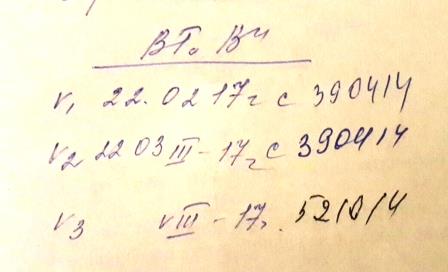 В Г. Вч
V₁ 22.02 17г с 390414
V₂ 22 03 III - 17г с 390414
V₃ VIII - 17г. 521014